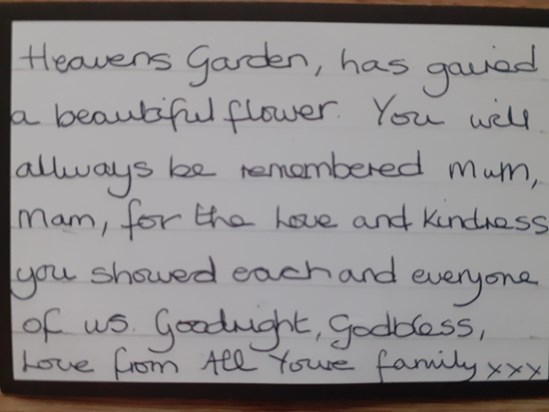 Heavens Garden, has gained
a beautiful flower. You will
allways be remembered Mum,
Mam, for the Love and Kindness
you showed each and everyone
of us. Goodnight, Godbless,
Love from All Youre family xxx